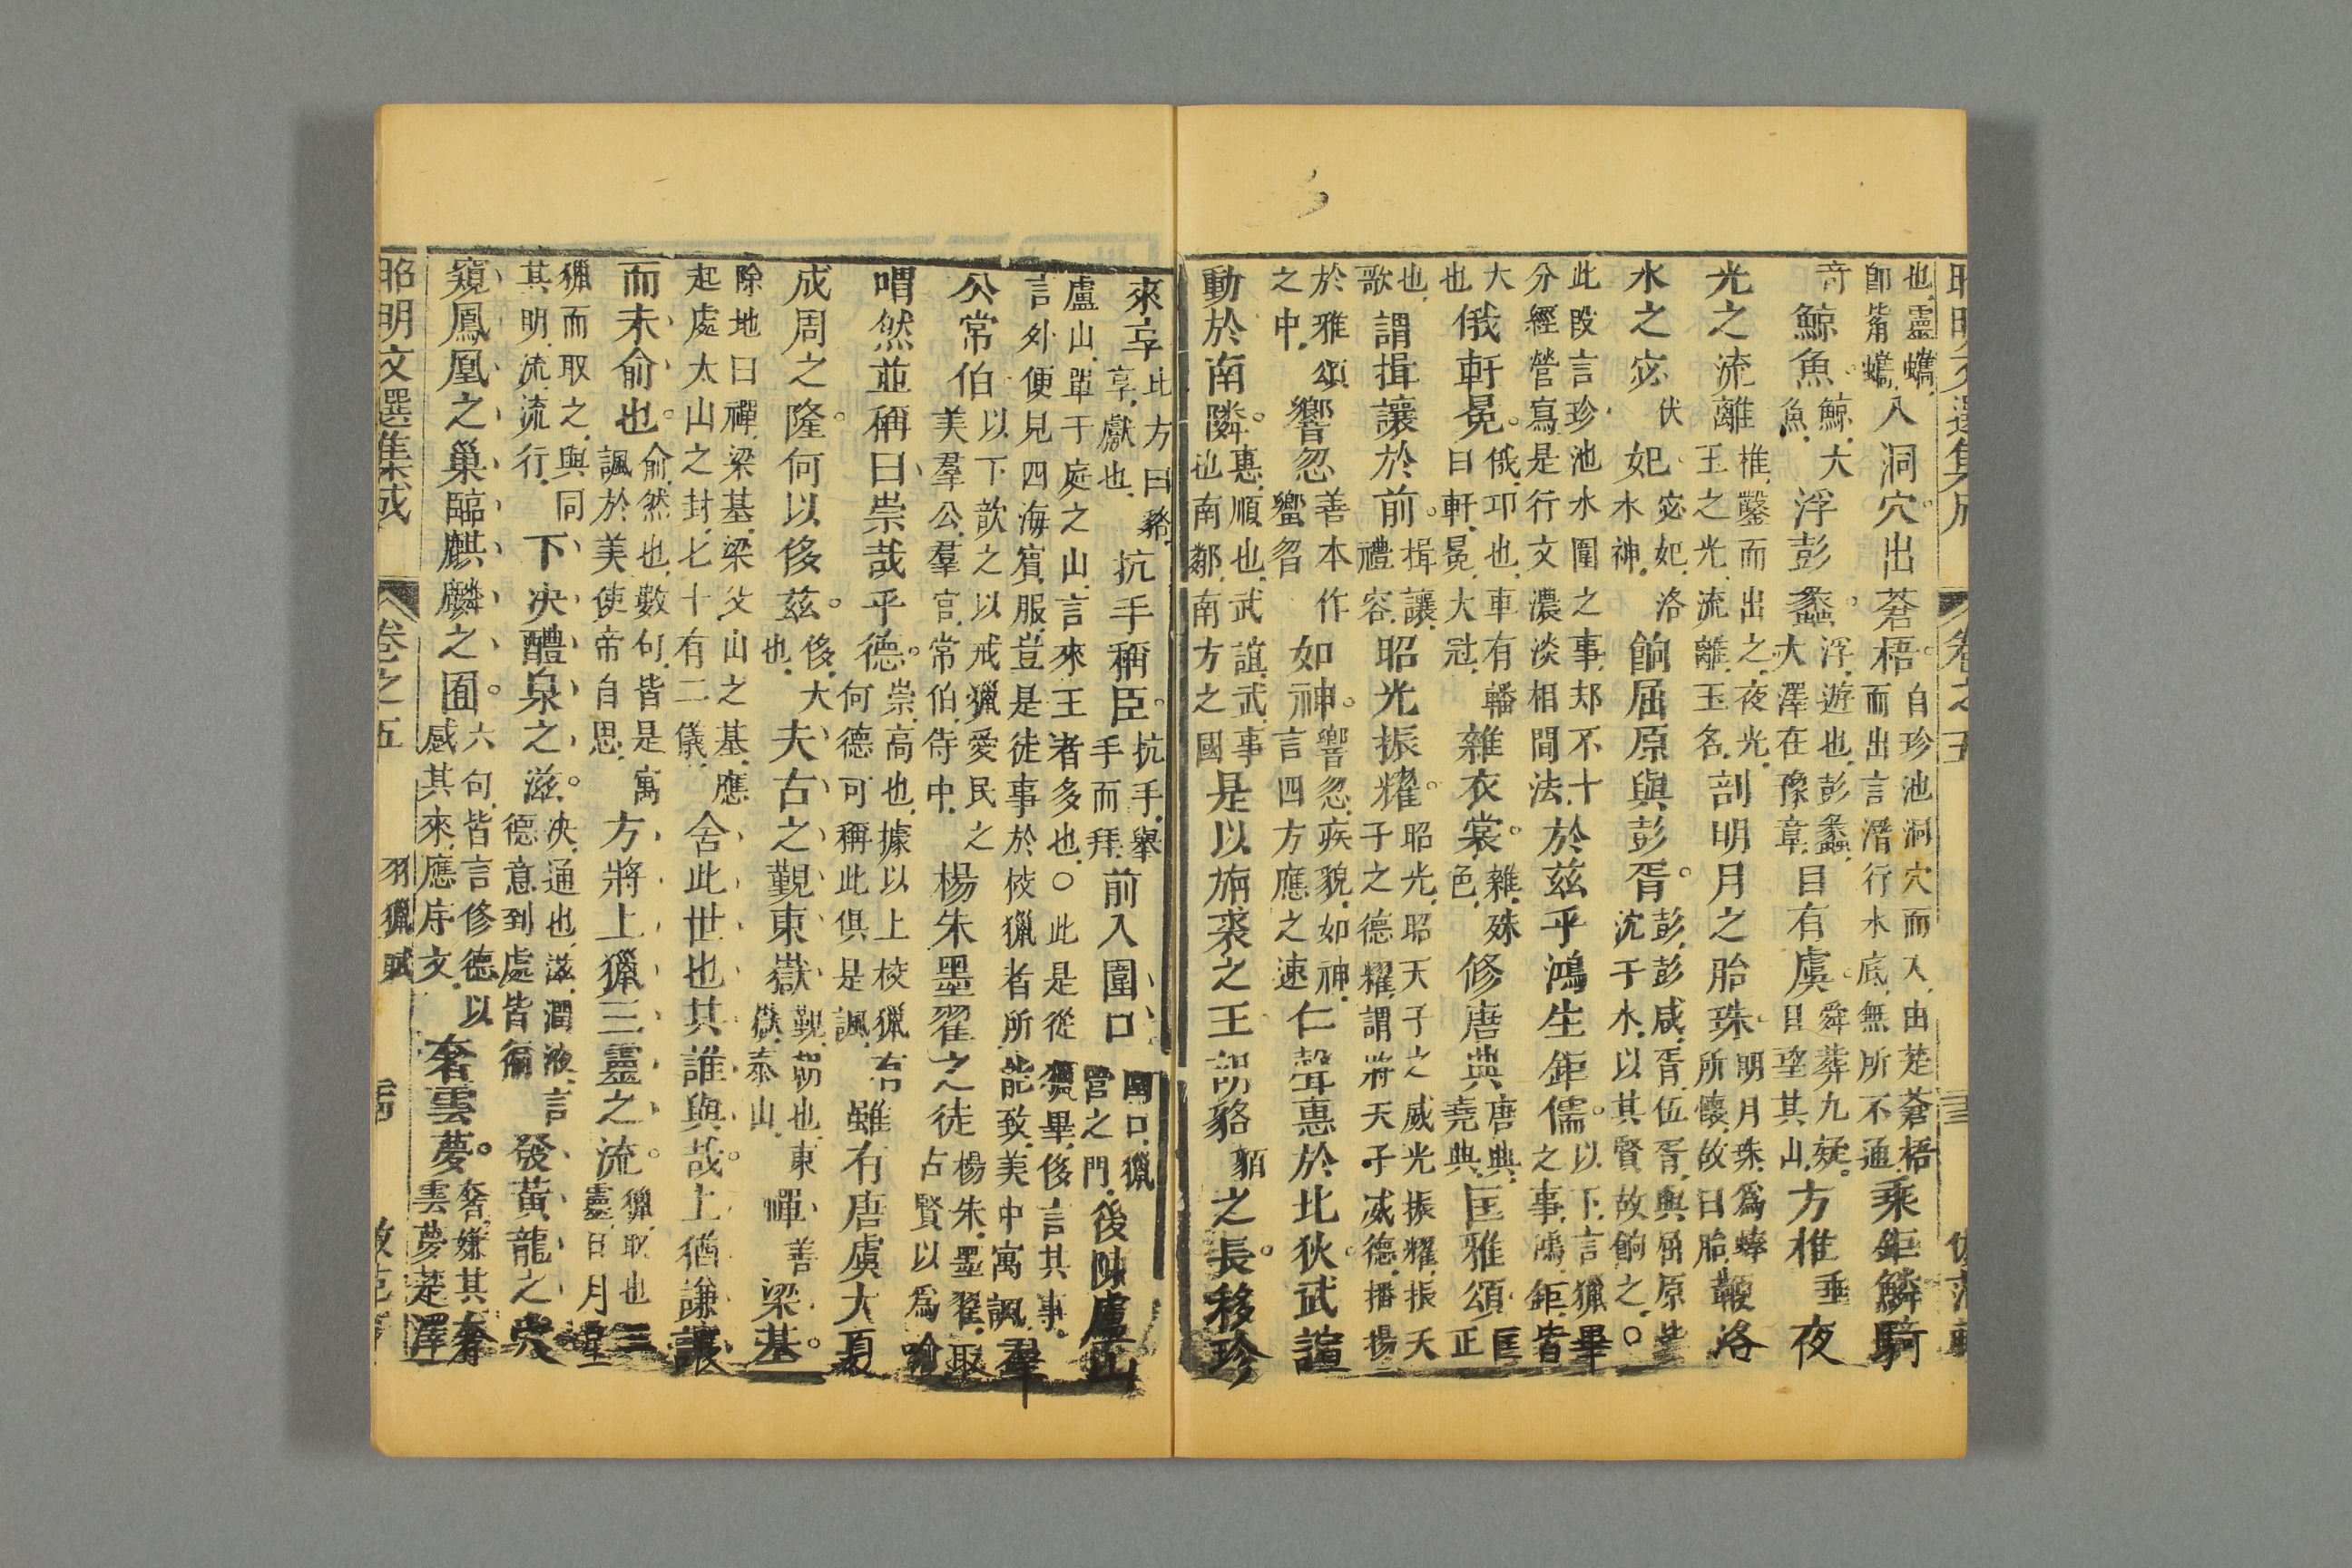 昭明文選集成 卷之五
也靈蠵卽觜蠵入洞穴出蒼梧自珍池洞穴而入由楚蒼梧而出言潛行水底無所不通乘鉅鱗騎
奇鯨魚鯨大魚浮彭蠡浮遊也彭蠡大澤在豫章目有虞舜葬九疑目望其山方椎垂夜
光之流離椎鑿而出之夜光王之光流流離玉名剖明月之胎珠明月珠爲蜯所懷故曰胎鞭洛
水之宓伏妃宓妃洛水神餉屈原與彭胥彭彭咸胥伍胥與屈原皆沈于水以其賢故餉之○
此段言珍池水圍之事却不十分經營寫是行文濃淡相間法於茲乎鴻生鉅儒以下言獵畢之事鴻鉅皆
大也俄軒冕俄卬也車有轓曰軒冕大冠雜衣裳雜殊色修唐典唐典堯典匡雅頌匡正
也歌謂揖讓於前揖讓禮容昭光振耀昭光昭天子之德耀謂將天子之威光振耀振天子威德播揚
於雅頌之中響忽善本作蠁曶如神響忽疾貌如神言四方應之速仁聲惠於北狄武誼
動於南隣惠順也武誼武事也南鄰南方之國是以旃裘之王胡貉貊之長移珍
來享比方曰貉享獻也抗手稱臣抗手舉手而拜前入圍口圍口獵營之門後陳盧山
盧山單于庭之山言來王者多也○此是從獵畢後言其事言外便見四海賓服豈是徒事於校獵者所能致美中寓諷羣
公常伯以下歆之以戒獵愛民之美羣公羣官常伯侍中楊朱墨翟之徒楊朱墨翟取占賢以爲喻
喟然並稱曰崇哉乎德崇高也據以上校獵言何德可稱此俱是諷雖有唐虞大夏
成周之隆何以侈茲侈大也夫古之覲東嶽覲朝也東嶽泰山禪善梁基
除地曰禪梁基梁父山之基應起處太山之封七十有二儀舍此世也其誰與哉上猶謙讓
而未俞也俞然也數句皆是寓諷於美使帝自思方將上獵三靈之流獵取也三靈日月星
獵而取之與同其明流流行下決醴泉之滋決通也滋潤液言德意到處皆徧發黃龍之穴
窺鳳凰之巢臨麒麟之囿六句皆言修德以感其來應序文奢雲夢奢嫌其奢雲夢楚澤
昭明文選集成 卷之五 羽獵賦